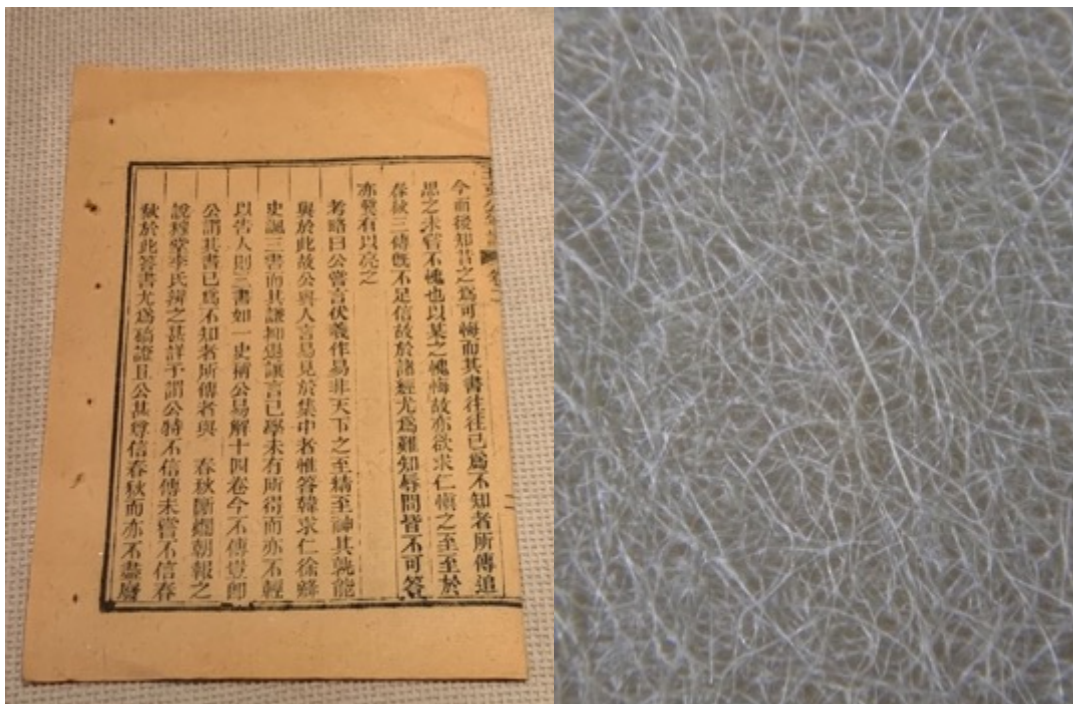 今而後知昔之爲可悔而其書往往已爲不知者所傳追
思之未嘗不愧也以某之愧悔故亦欲求仁愼之至至於
春秋三傳旣不足信故於諸經尤爲難知辱問皆不可答
亦冀有以亮之
考略曰公嘗言伏羲作易非天下之至精至神其孰能
與於此故公與人言易見於集中者惟答韓求仁徐絳
史諷三書而其謙抑退讓言已學未有所得而亦不輕
以告人則三書如一史稱公易解十四卷今不傳豈卽
公謂其書已爲不知者所傳者與　春秋斷爛朝報之
說穆堂李氏辨之甚詳予謂公特不信傳未嘗不信春
秋於此答書尤爲碻證且公甚尊信春秋而亦不盡廢